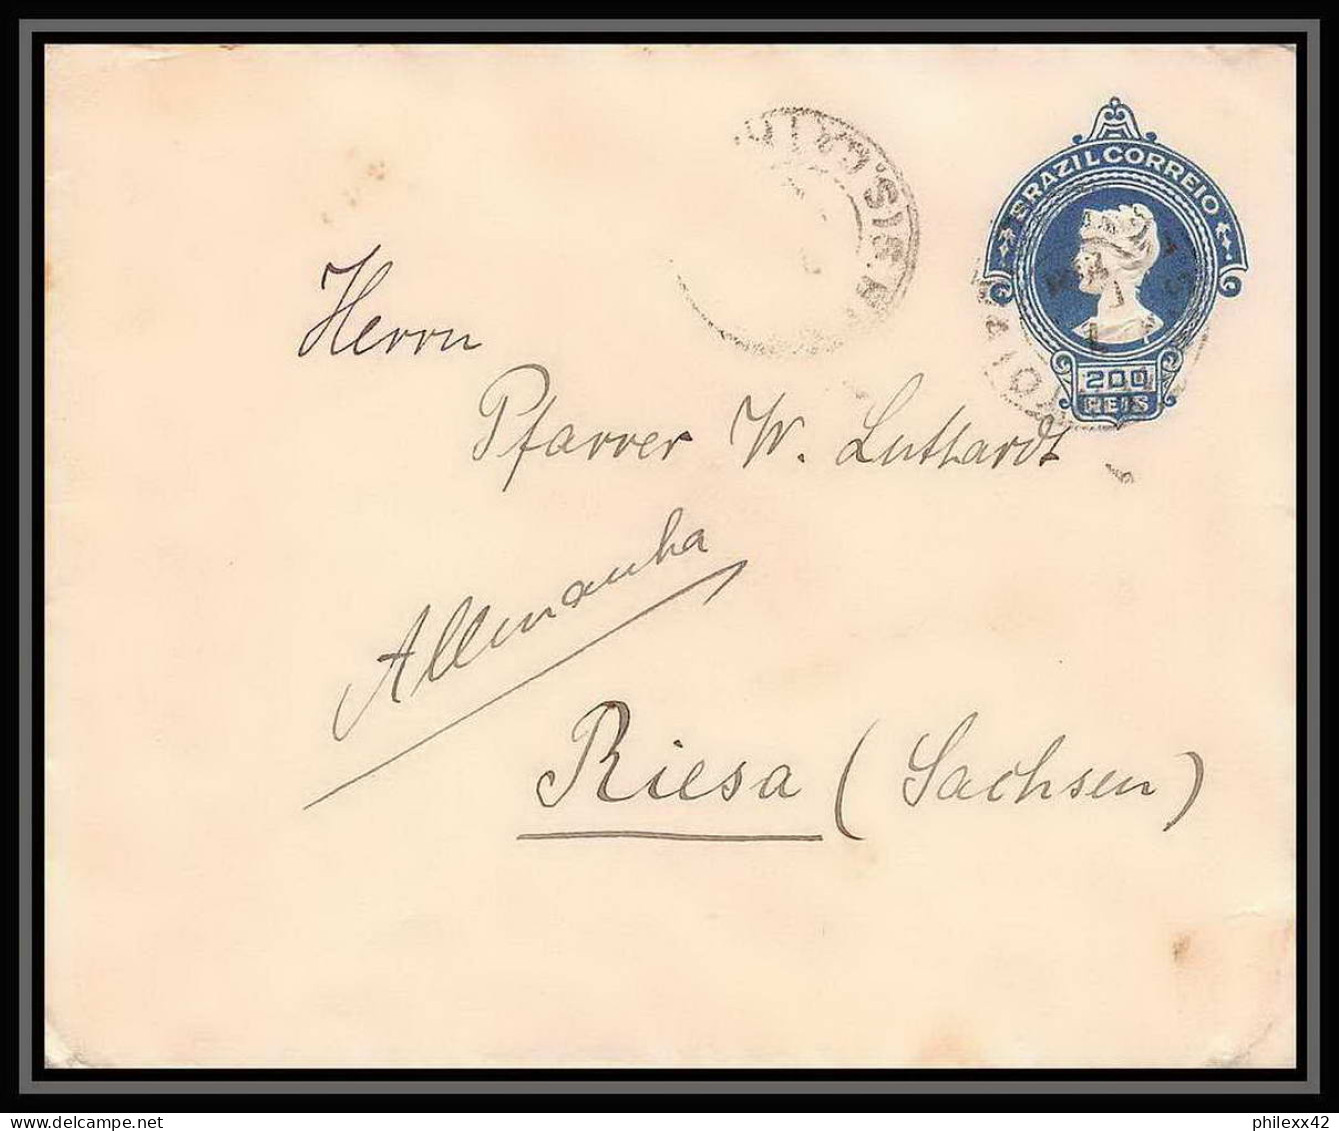 BRAZIL CORREIO
200
REIS
Herrn
Pfarrer W. Luthardt
Allemanha
Riesa (Sachsen)
philexx42